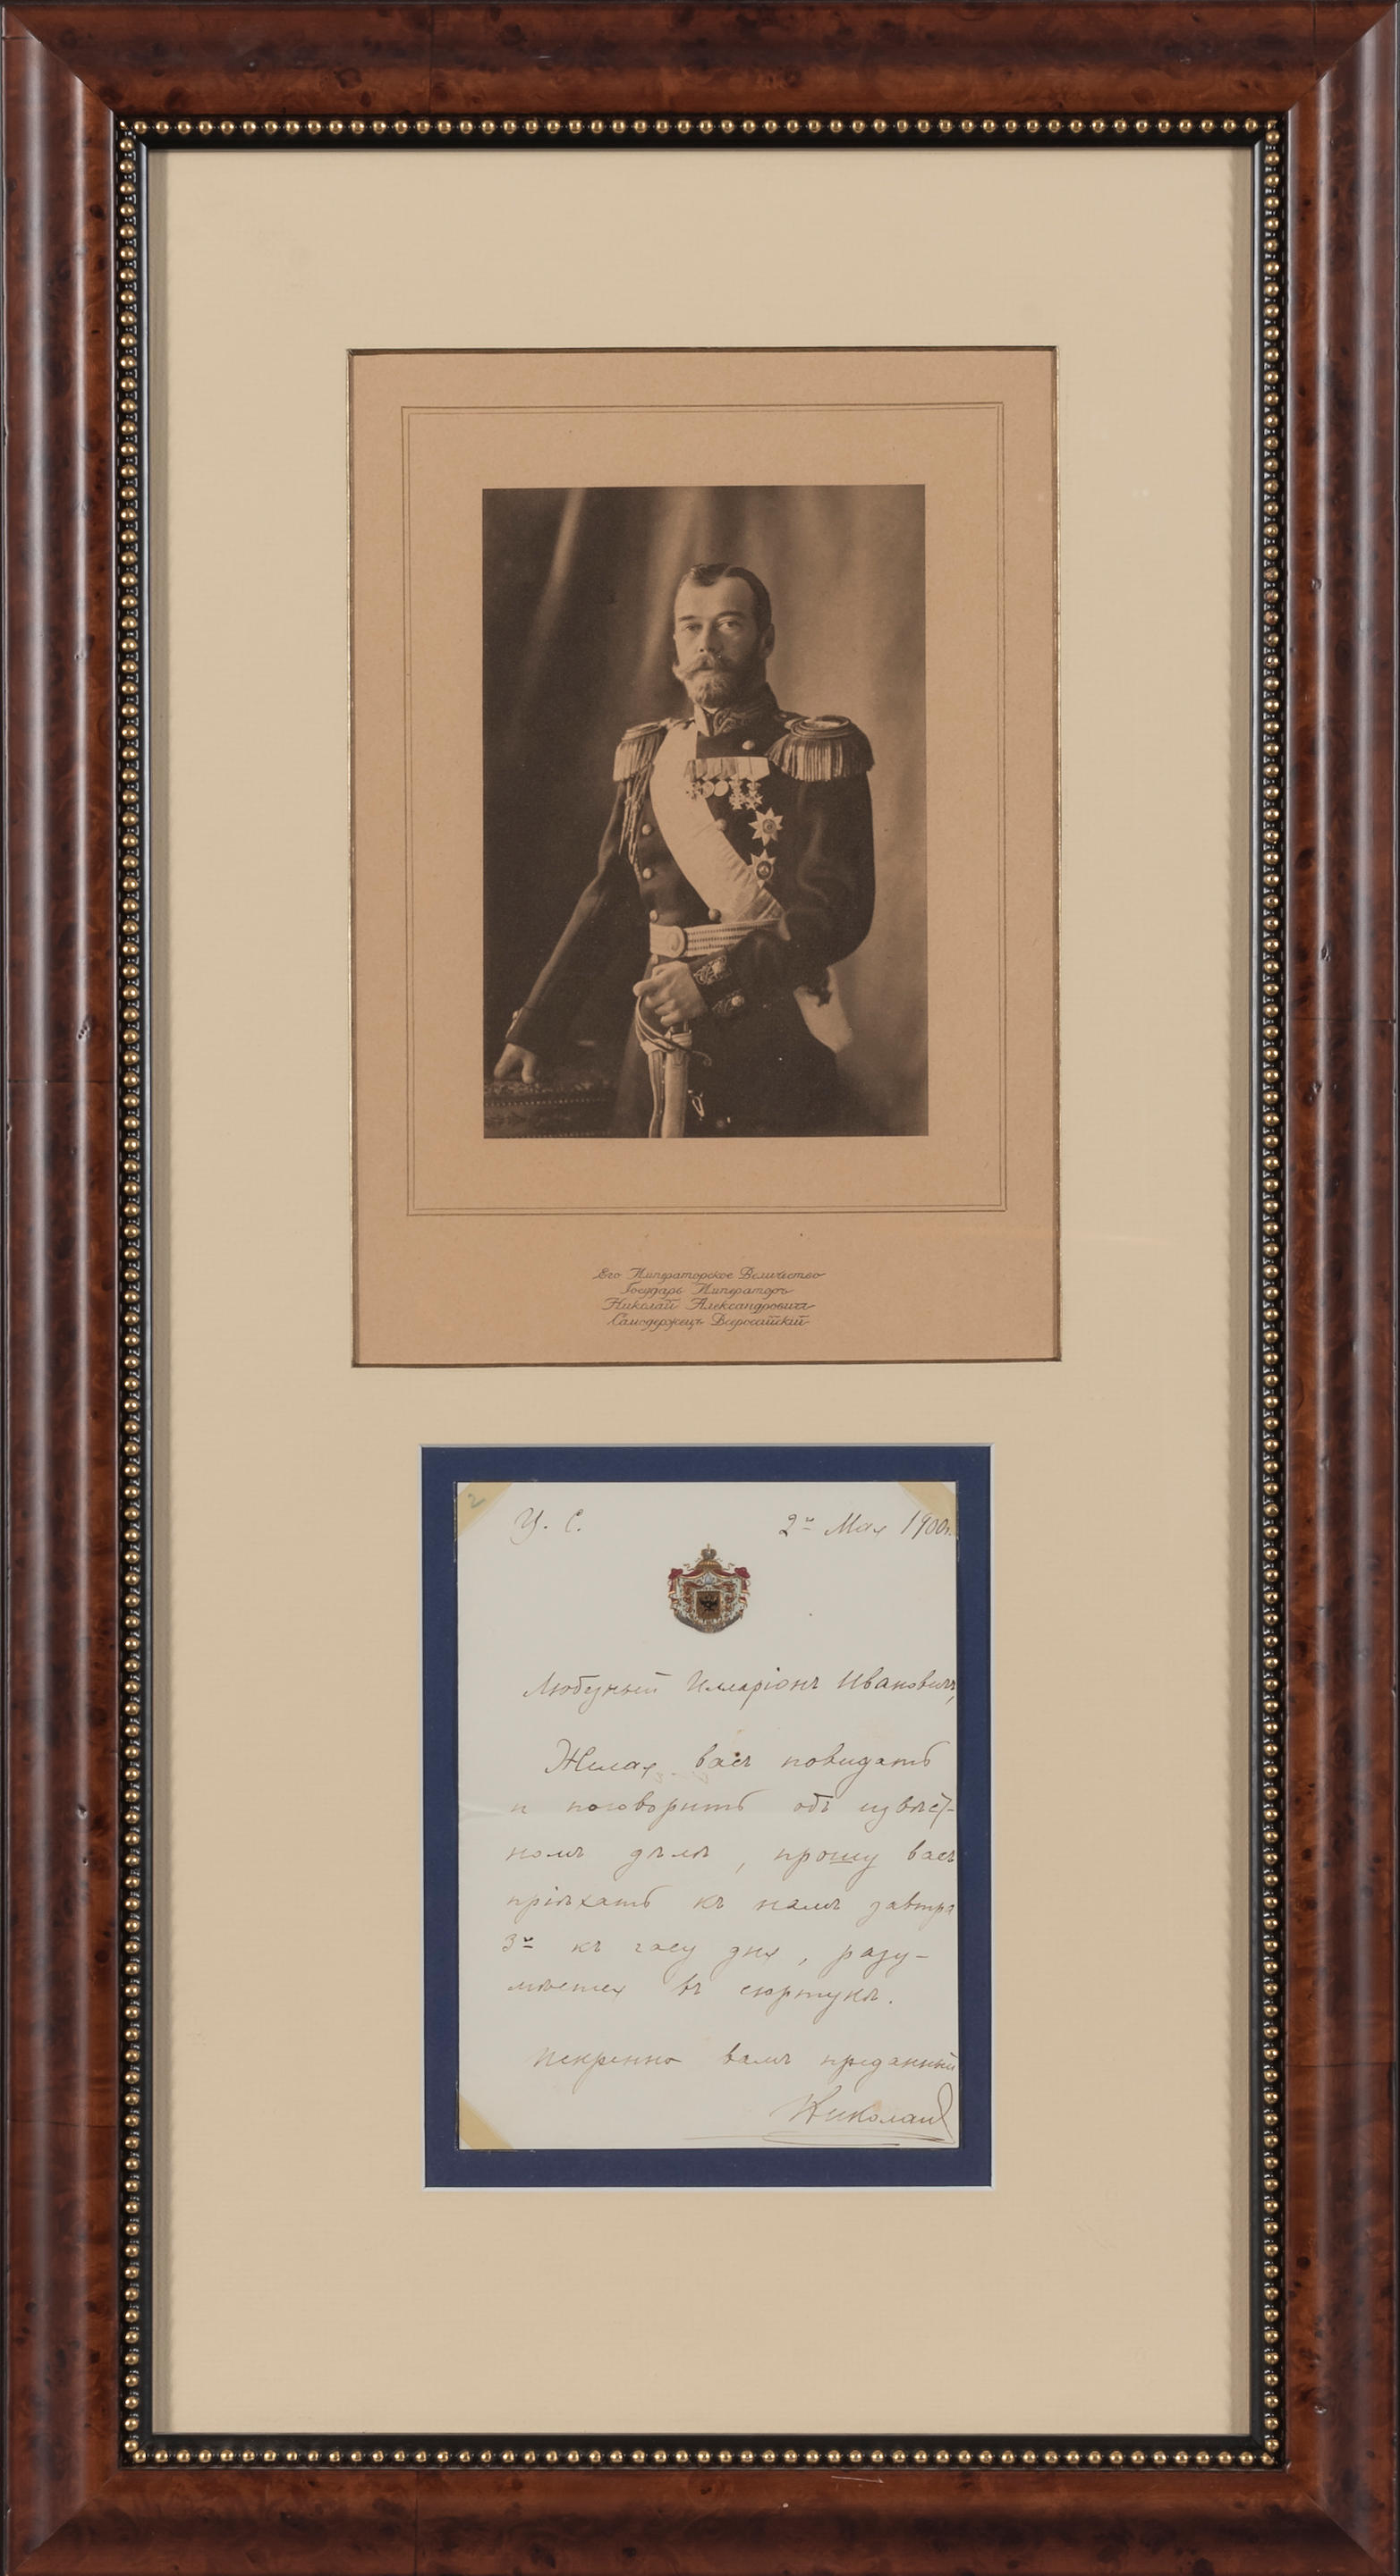 Его Императорское Величество
Государь Императоръ
Николай Александровичъ
Самодержецъ Всероссийскій
2
Ц. С.
2го Мая 1900г.
Любезный Илларіонъ Ивановичъ,
Желая васъ повидать
и поговорить объ извѣст-
номъ дѣлѣ, прошу васъ
пріѣхать къ намъ завтра
3го къ часу дня, разу-
мѣется въ сюртукѣ.
Искренно вамъ преданный
Николай